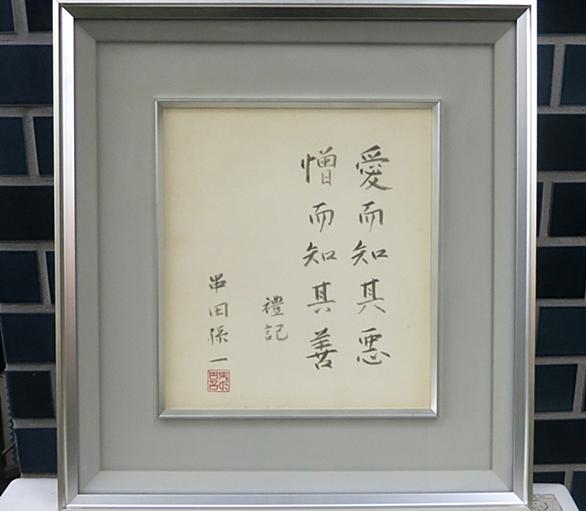 愛而知其悪
憎而知其善
禮記
串田孫一